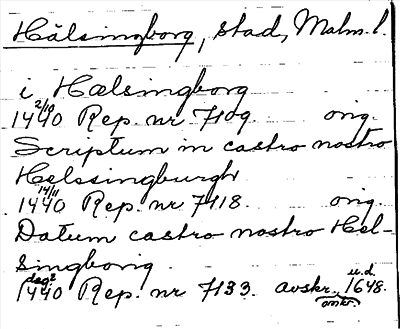 Hälsingborg, stad, Malm. l.
i Hælsingborg
1440 2/10 Rep. nr 7109. orig.
Scriptum in castro nostro
Helssingburgh
1440 14/11 Rep. nr 7118. orig.
Datum castro nostro Hel-
singborig
1440 Rep. nr 7133. avskr. 1648.
u.d.